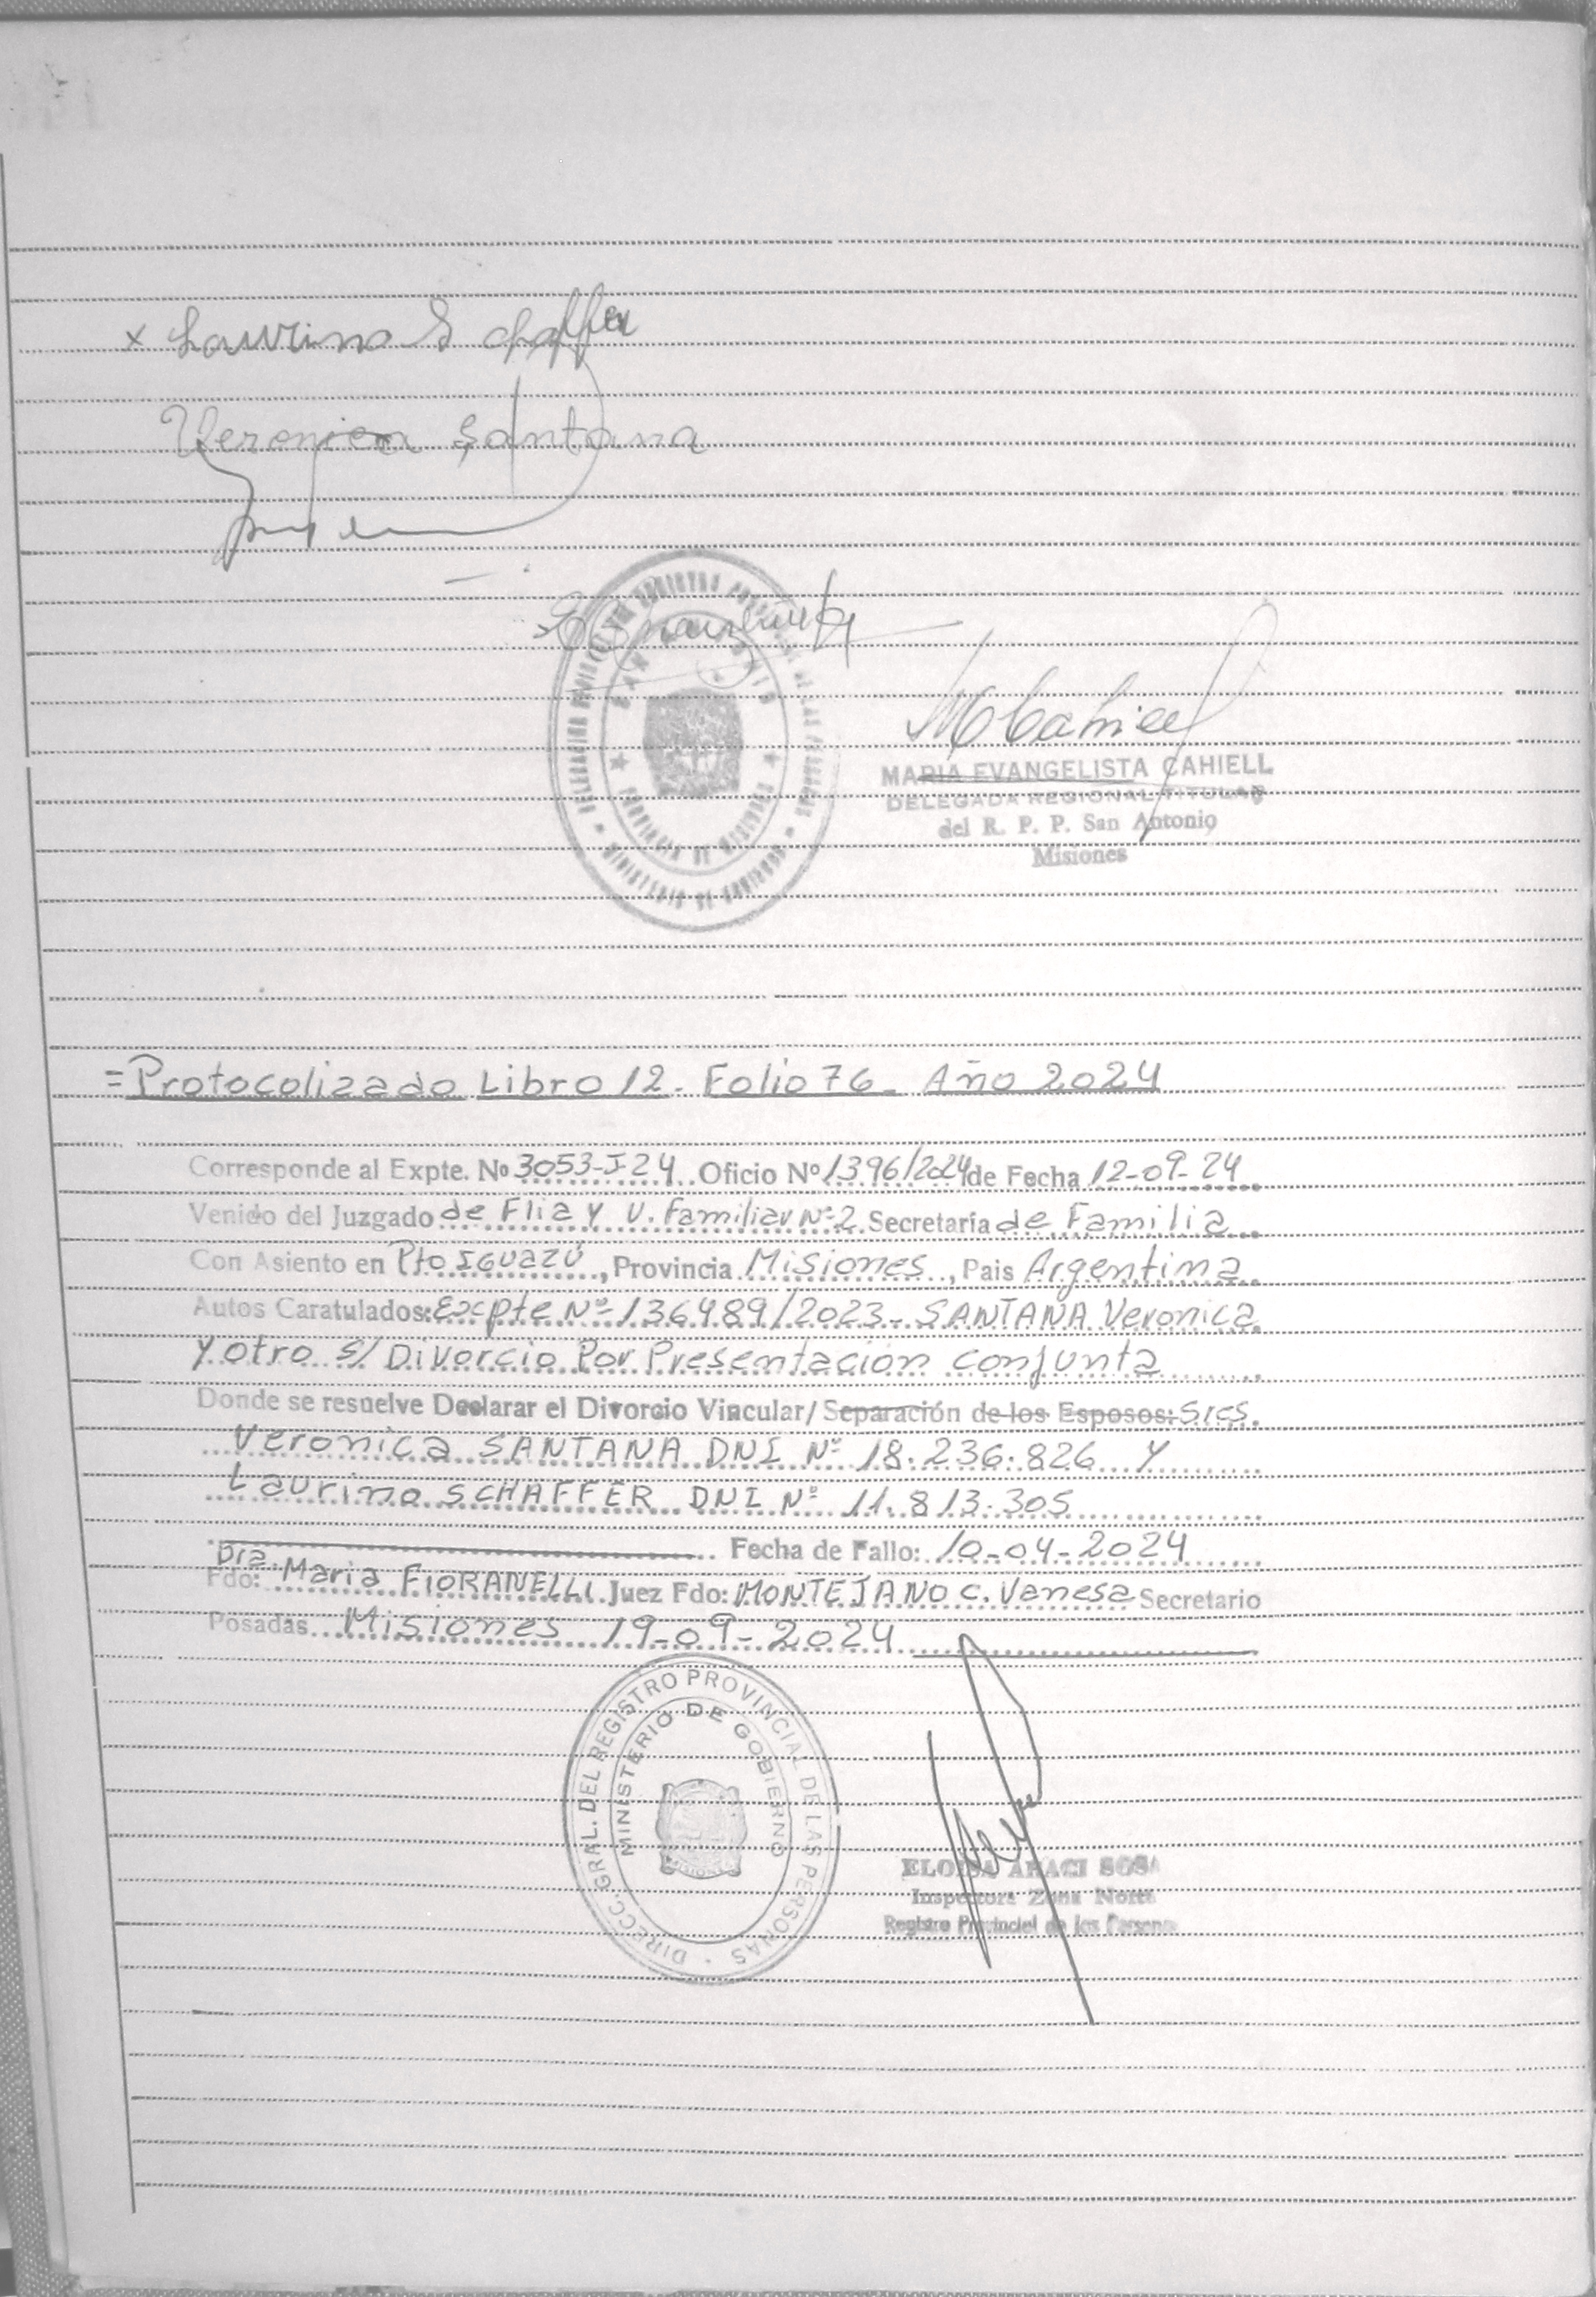 x Laurino Schaffer
Veronica Santana
DELEGACION REGISTRO PROVINCIAL DE LAS PERSONAS
SAN ANTONIO
PROVINCIA DE MISIONES
MINISTERIO DE GOBIERNO
MARIA EVANGELISTA CAHIELL
DELEGADA REGIONAL TITULAR
del R. P. P. San Antonio
Misiones
=Protocolizado Libro 12. Folio 76. Año 2024
Corresponde al Expte. Nº 3053-J-24 Oficio Nº 1396/2024 de Fecha 12-09-24
Venido del Juzgado de Flia y V. Familiar Nº 2 Secretaría de Familia
Con Asiento en Pto IGUAZÚ, Provincia Misiones, Pais Argentina
Autos Caratulados: Excpte Nº 136489/2023- SANTANA Veronica
y otro s/ Divorcio Por Presentación conjunta
Donde se resuelve Declarar el Divorcio Vincular/ Separación de los Esposos: Sres.
Veronica SANTANA DNI Nº 18.236.826 y
Laurino SCHAFFER DNI Nº 11.813.305
Fecha de Fallo: 10-04-2024
Fdo: Dra. Maria FIORANELLI Juez Fdo: MONTEJANO C. Vanesa Secretario
Posadas Misiones 19-09-2024
DIRECC. GRAL. DEL REGISTRO PROVINCIAL DE LAS PERSONAS
MINISTERIO DE GOBIERNO
MISIONES
ELOISA ARACI SOSA
Inspectora Zona Norte
Registro Provincial de las Personas